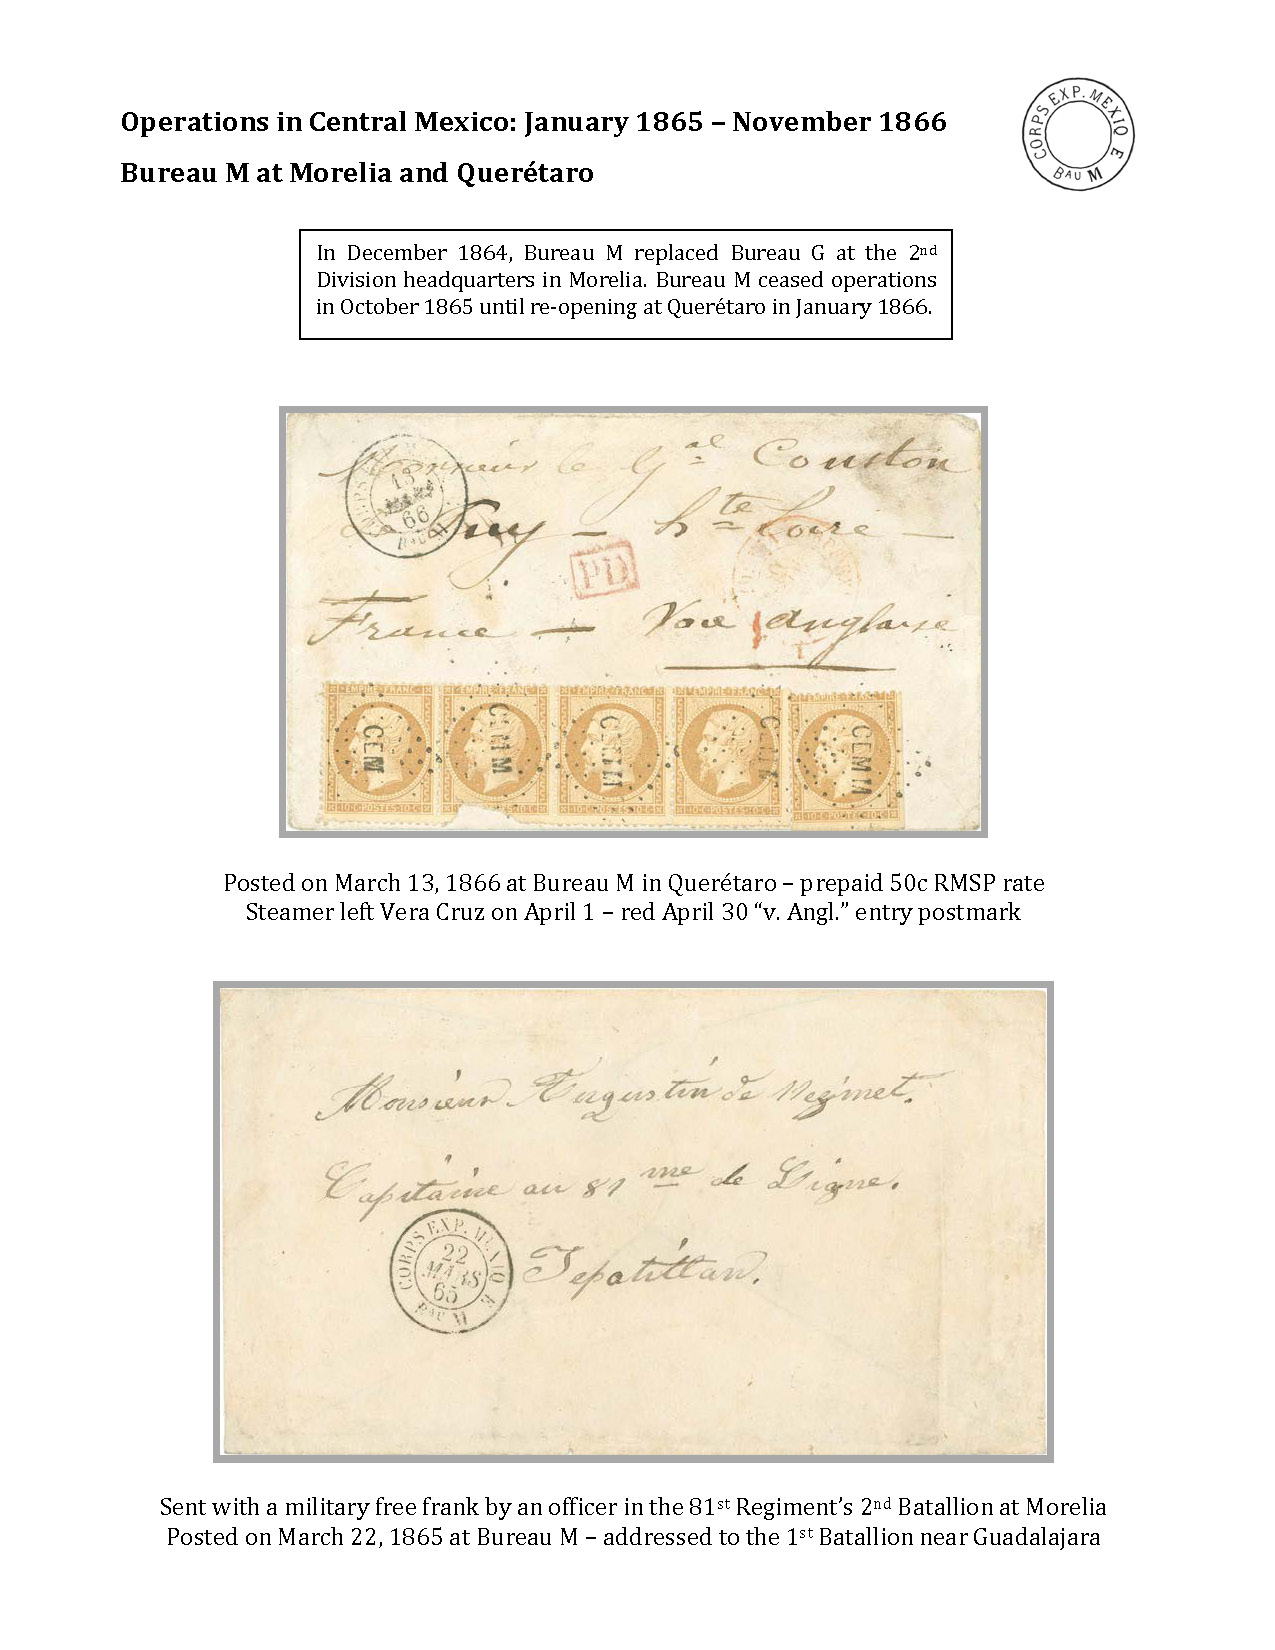 Operations in Central Mexico: January 1865 – November 1866
CORPS EXP. MEXIQ E
Bau M
Bureau M at Morelia and Querétaro
In December 1864, Bureau M replaced Bureau G at the 2nd
Division headquarters in Morelia. Bureau M ceased operations
in October 1865 until re-opening at Querétaro in January 1866.
Monsieur le Gal Couston
Puy – hte Loire –
13
MARS
66
Bau M
PD
France – Voie Anglaise
EMPIRE FRANC EMPIRE FRANC EMPIRE FRANC EMPIRE FRANC EMPIRE FRANC
CEM CEMM CEMM CEMM
10 C POSTES 10 C 10 C POSTES 10 C 10 C POSTES 10 C 10 C POSTES 10 C 10 C POSTES 10 C
Posted on March 13, 1866 at Bureau M in Querétaro – prepaid 50c RMSP rate
Steamer left Vera Cruz on April 1 – red April 30 “v. Angl.” entry postmark
Monsieur Augustin de
Capitaine au 81me de Ligne.
CORPS EXP. MEXIQ E
22
MARS
65
Bau M
Tepatitlan.
Sent with a military free frank by an officer in the 81st Regiment’s 2nd Batallion at Morelia
Posted on March 22, 1865 at Bureau M – addressed to the 1st Batallion near Guadalajara